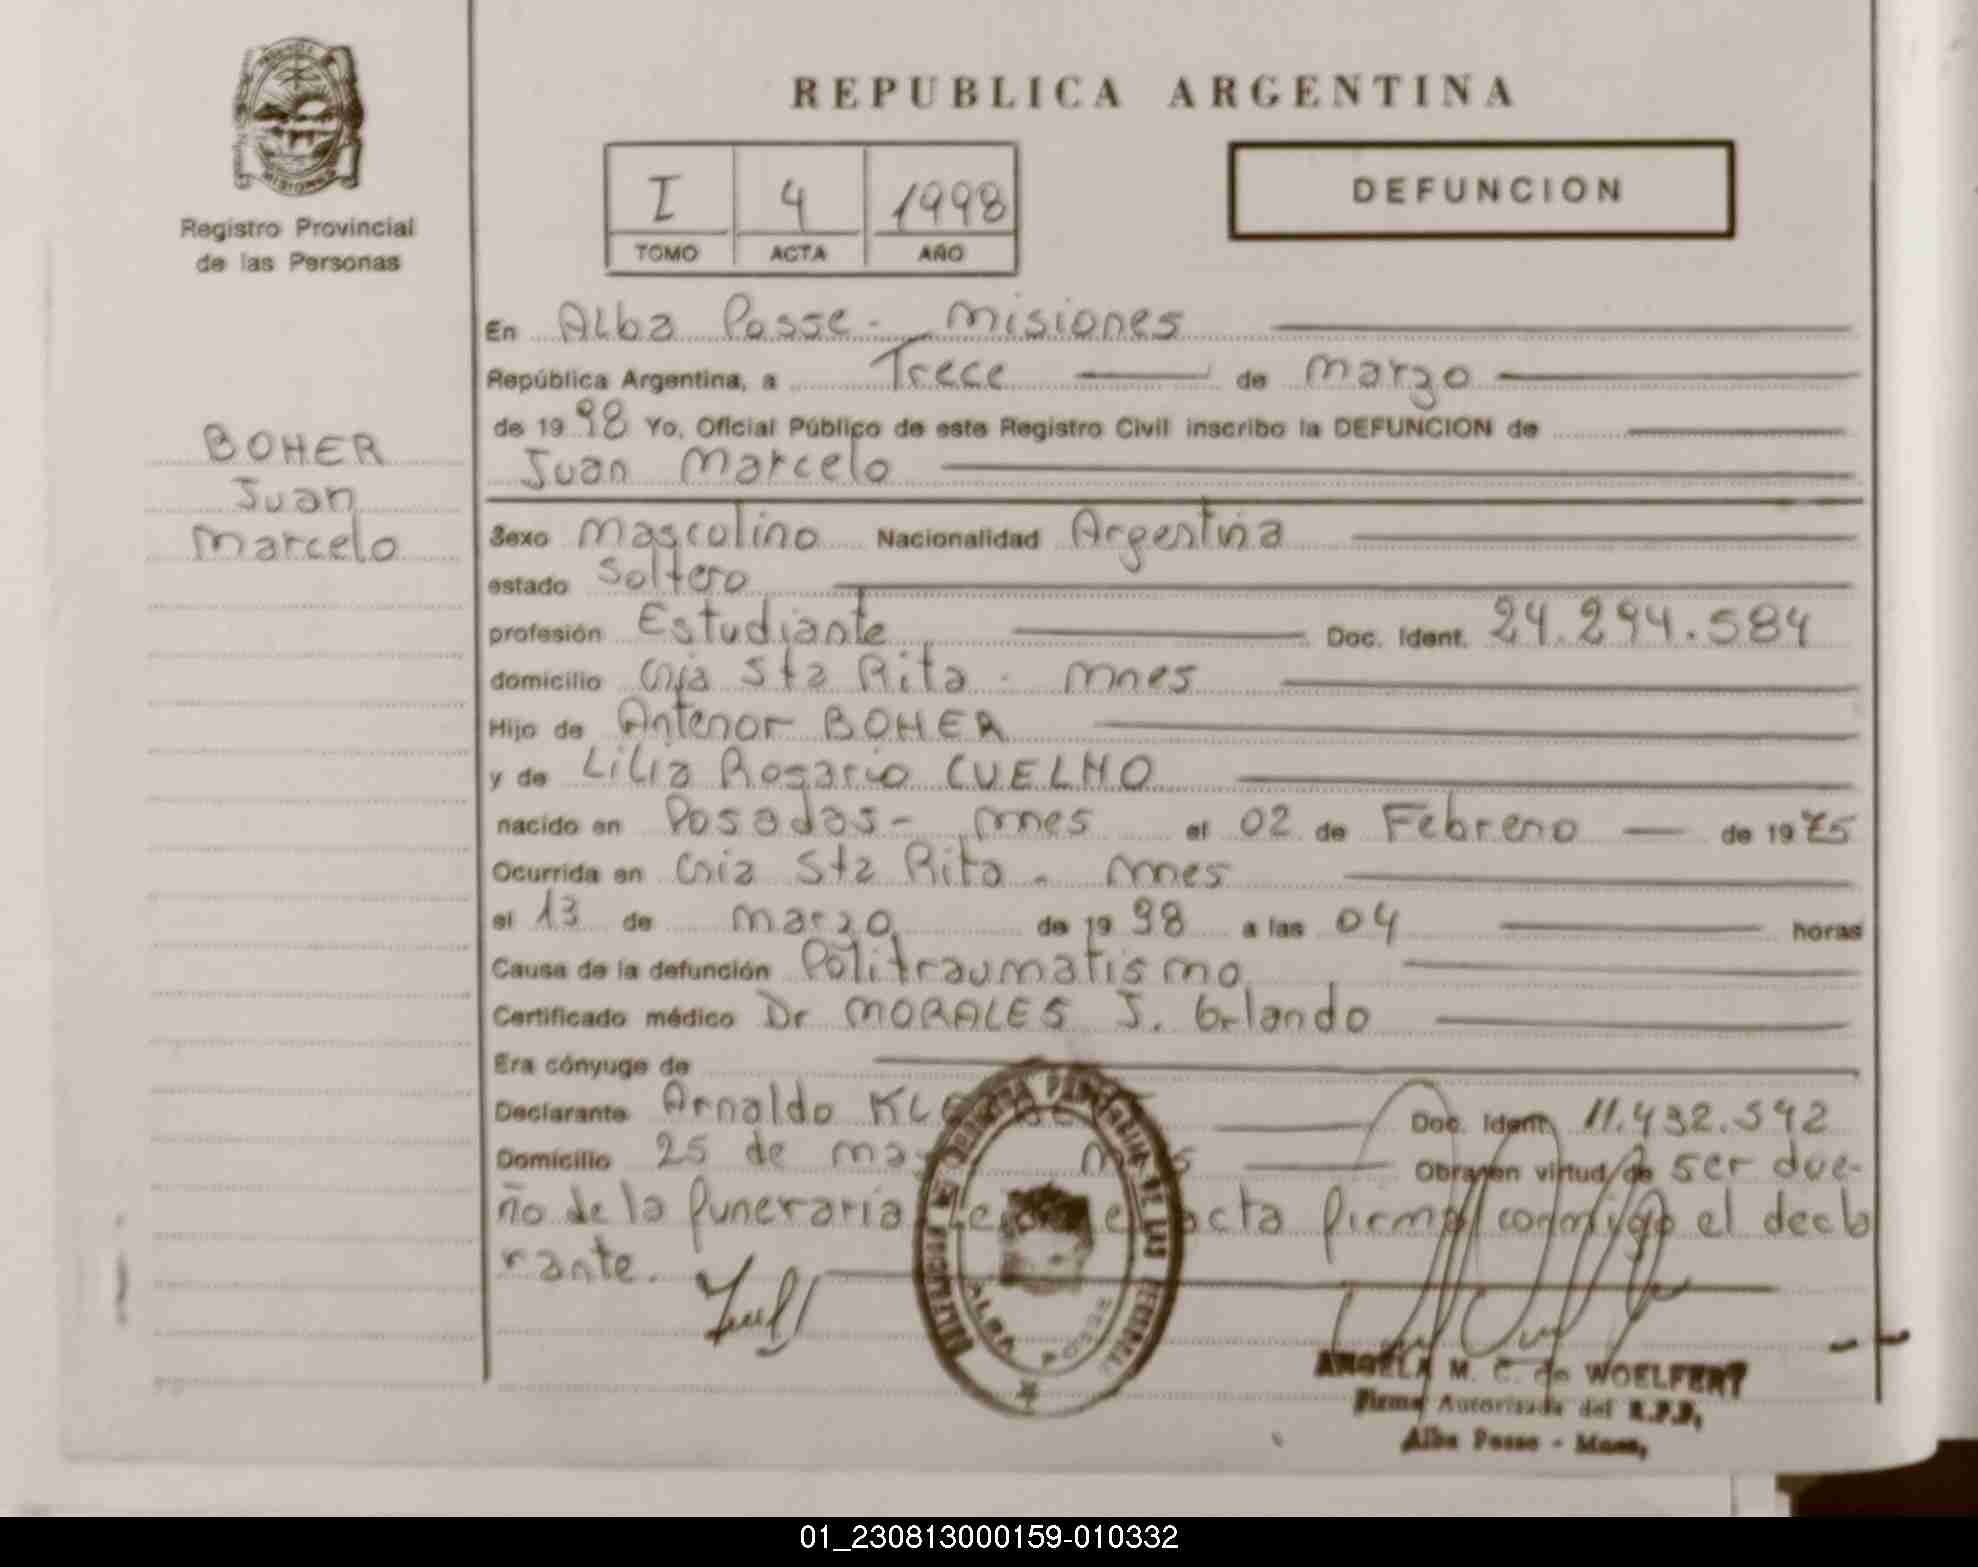 MISIONES
Registro Provincial
de las Personas
REPUBLICA ARGENTINA
I 4 1998
TOMO ACTA AÑO
DEFUNCION
BOHER
Juan
Marcelo
En Alba Posse - Misiones
República Argentina, a Trece de Marzo
de 1998 Yo, Oficial Público de este Registro Civil inscribo la DEFUNCION de
Juan Marcelo
Sexo Mascolino Nacionalidad Argentina
estado Soltero
profesión Estudiante Doc. Ident. 24.294.584
domicilio Cnia Sta Rita - Mnes
Hijo de Antenor BOHER
y de Lilia Rosario CUELHO
nacido en Posadas - Mnes el 02 de Febrero de 1975
Ocurrida en Cnia Sta Rita - Mnes
el 13 de Marzo de 1998 a las 04 horas
Causa de la defunción Politraumatismo
Certificado médico Dr MORALES J. Orlando
Era cónyuge de
Declarante Arnaldo Doc. Ident. 11.432.592
Domicilio 25 de Obra en virtud de ser due-
ño de la funeraria acta firma conmigo el decla
rante.
ALBA POSSE
ANGELA M. C. de WOELFERT
Firma Autorizada del R.P.P.
Alba Posse - Mnes,
01_230813000159-010332